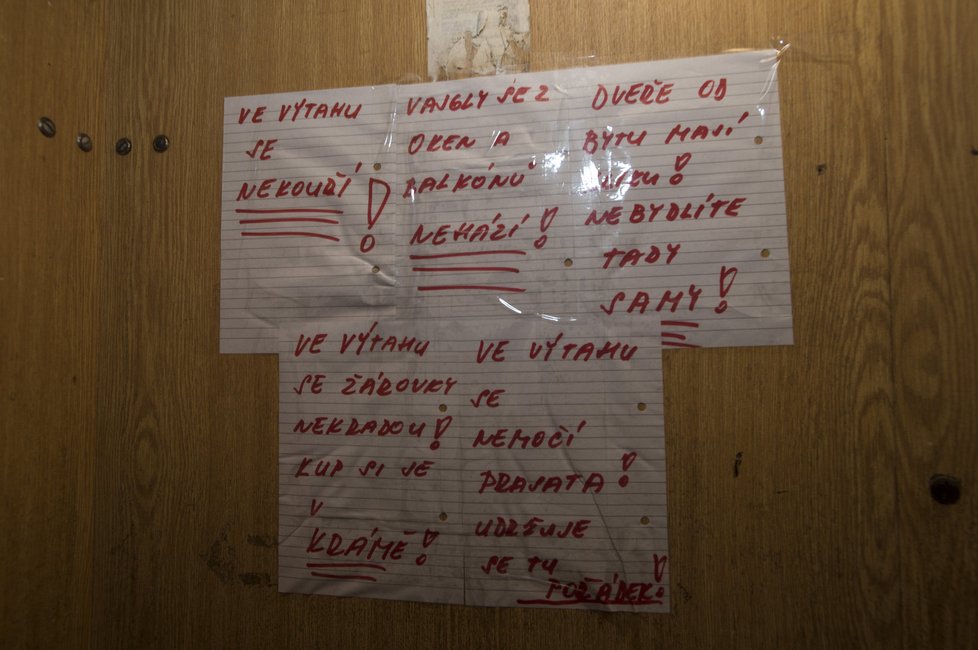 VE VÝTAHU
SE
NEKOUŘÍ!
VAJGLY SE Z
OKEN A
BALKÓNŮ
NEHÁZÍ!
DVEŘE OD
BYTU MAJÍ
KLIKU!
NEBYDLÍTE
TADY
SAMY!
VE VÝTAHU
SE ŽÁROVKY
NEKRADOU!
KUP SI JE
V
KRÁMĚ!
VE VÝTAHU
SE
NEMOČÍ
PRASATA!
UDRŽUJE
SE TU
POŘÁDEK!